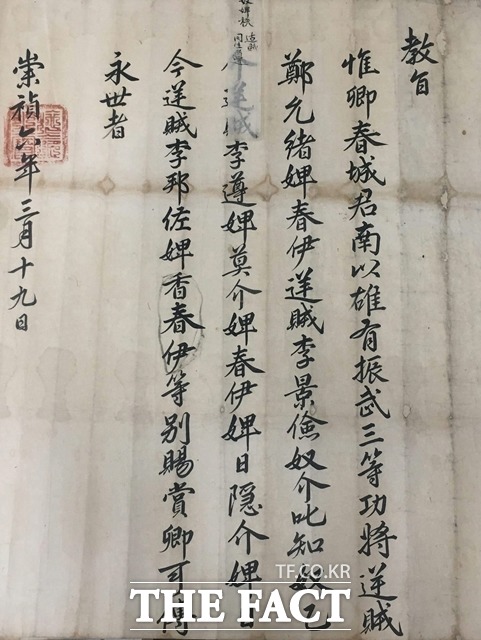 教旨
惟卿春城君南以雄有振武三等功將逆賊
鄭允緖婢春伊逆賊李景儉奴介叱知奴
李遵婢莫介婢春伊婢日隱介婢
今逆賊李邦佐婢香春伊等別賜賞卿可傳
永世者
崇禎六年三月十九日
TF.CO.KR
THE FACT